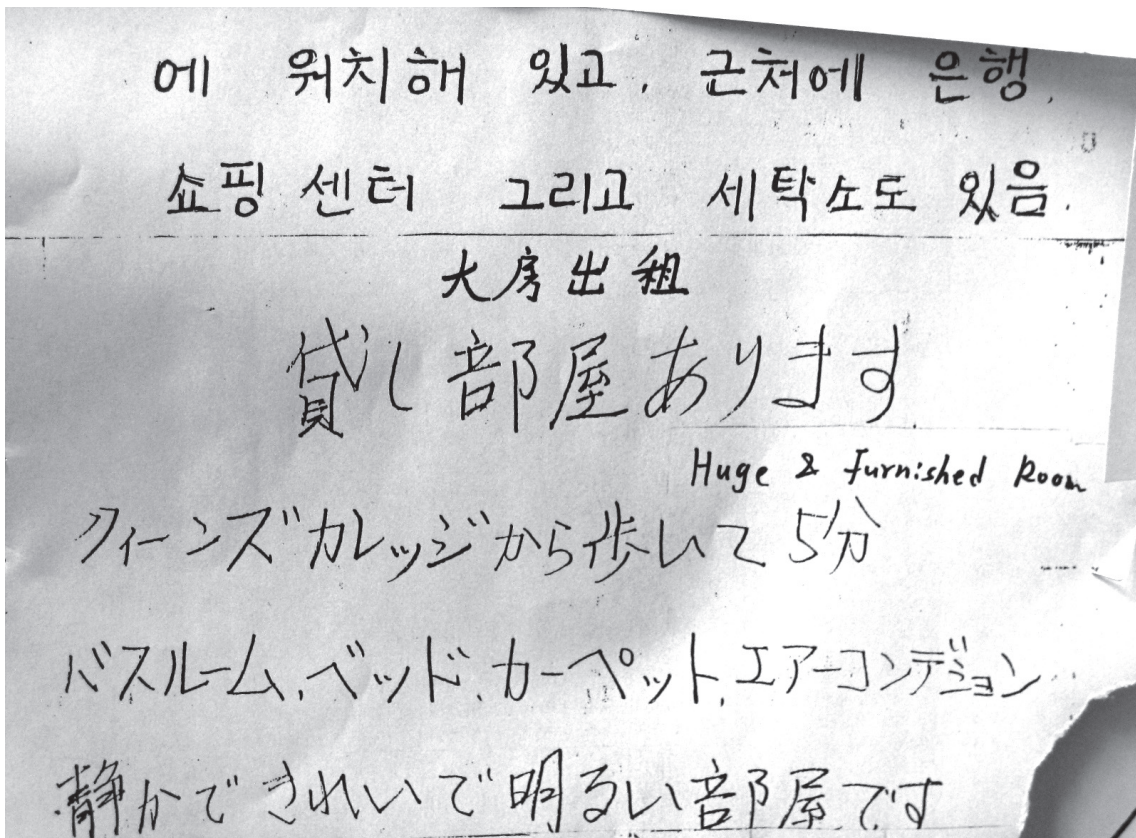 에 위치해 있고, 근처에 은행,
쇼핑 센터 그리고 세탁소도 있음.
大房出租
貸し部屋あります.
Huge & furnished Room
クィーンズカレッジから歩いて5分
バスルーム、ベッド、カーペット、エアーコンデション
静かできれいで明るい部屋です